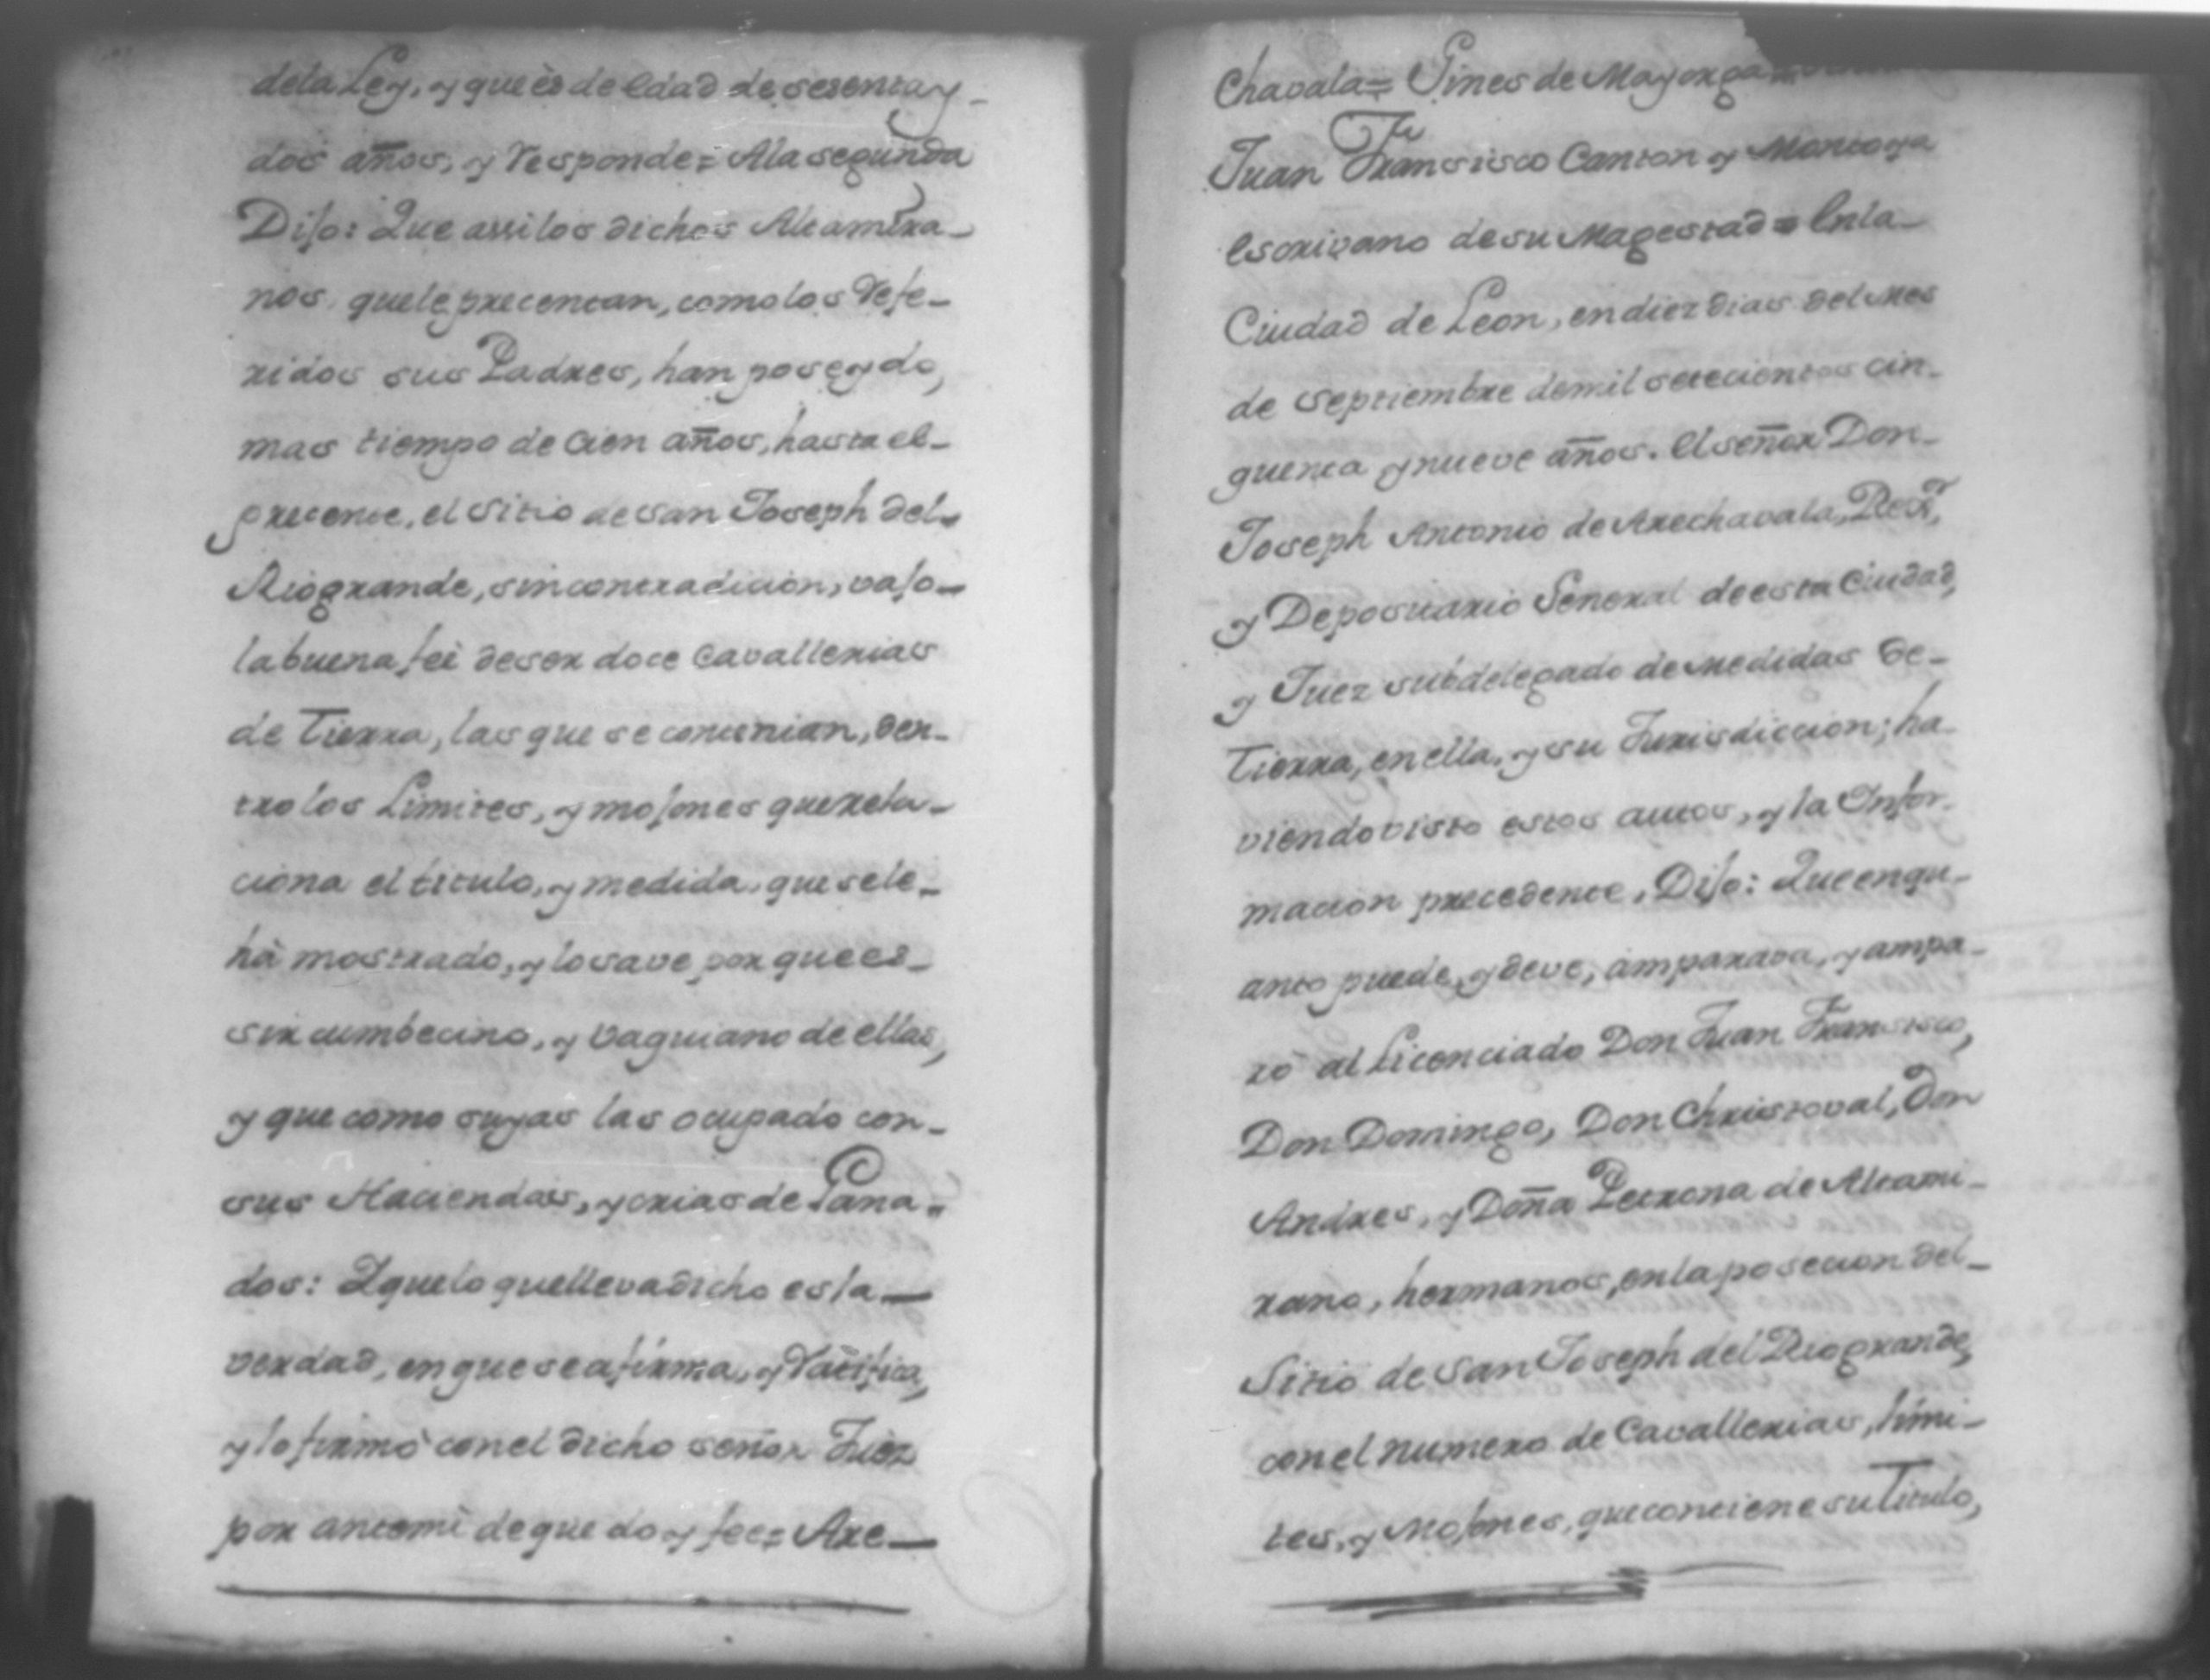 dela Ley, y que ès de Edad de sesenta y-
dos años, y Responde= Ala segunda
Dijo: Que assi los dichos Altamira-
nos que le precentan, como los Refe-
ridos sus Padres, han poseydo,
mas tiempo de cien años, hasta el-
precente, el sitio de san Joseph del-
Riogrande, sin contradicion, vajo-
la buena feè de ser doce Cavallerias
de Tierra, las que se contenian, den-
tro los Limites, y mojones que rela-
ciona el titulo, y medida, que se le-
hà mostrado, y lo save por que es-
sircumbecino, y Vaquiano de ellas,
y que como suyas las ocupado con-
sus Haciendas, y crias de Gana-
dos: Y que lo que lleva dicho es la-
verdad, en que se afirma, y Ratifica,
y lo firmò con el dicho señor Juez
por antemi de que doy fee= Are-
chavala= Gines de Mayorga=
Juan Franscisco Canton y Montoya
Escrivano de su Magestad= En la-
Ciudad de Leon, en diez dias del mes
de Septiembre de mil setecientos cin-
quenta y nueve años. El señor Don-
Joseph Antonio de Arechavala, Regr,
y Depositario General de esta Ciudad,
y Juez subdelegado de medidas de-
Tierra, en ella, y su Jurisdiccion; ha-
viendo visto estos autos, y la Infor-
macion precedente, Dijo: Que en qu-
anto puede, y deve, amparava, y ampa-
rò al Licenciado Don Juan Francisco,
Don Domingo, Don Christoval, Don
Andres, y Doña Petrona de Altami-
rano, hermanos, en la posecion del-
Sitio de San Joseph del Riogrande,
con el numero de Cavallerias, limi-
tes, y Mojones, que contiene su Titulo,